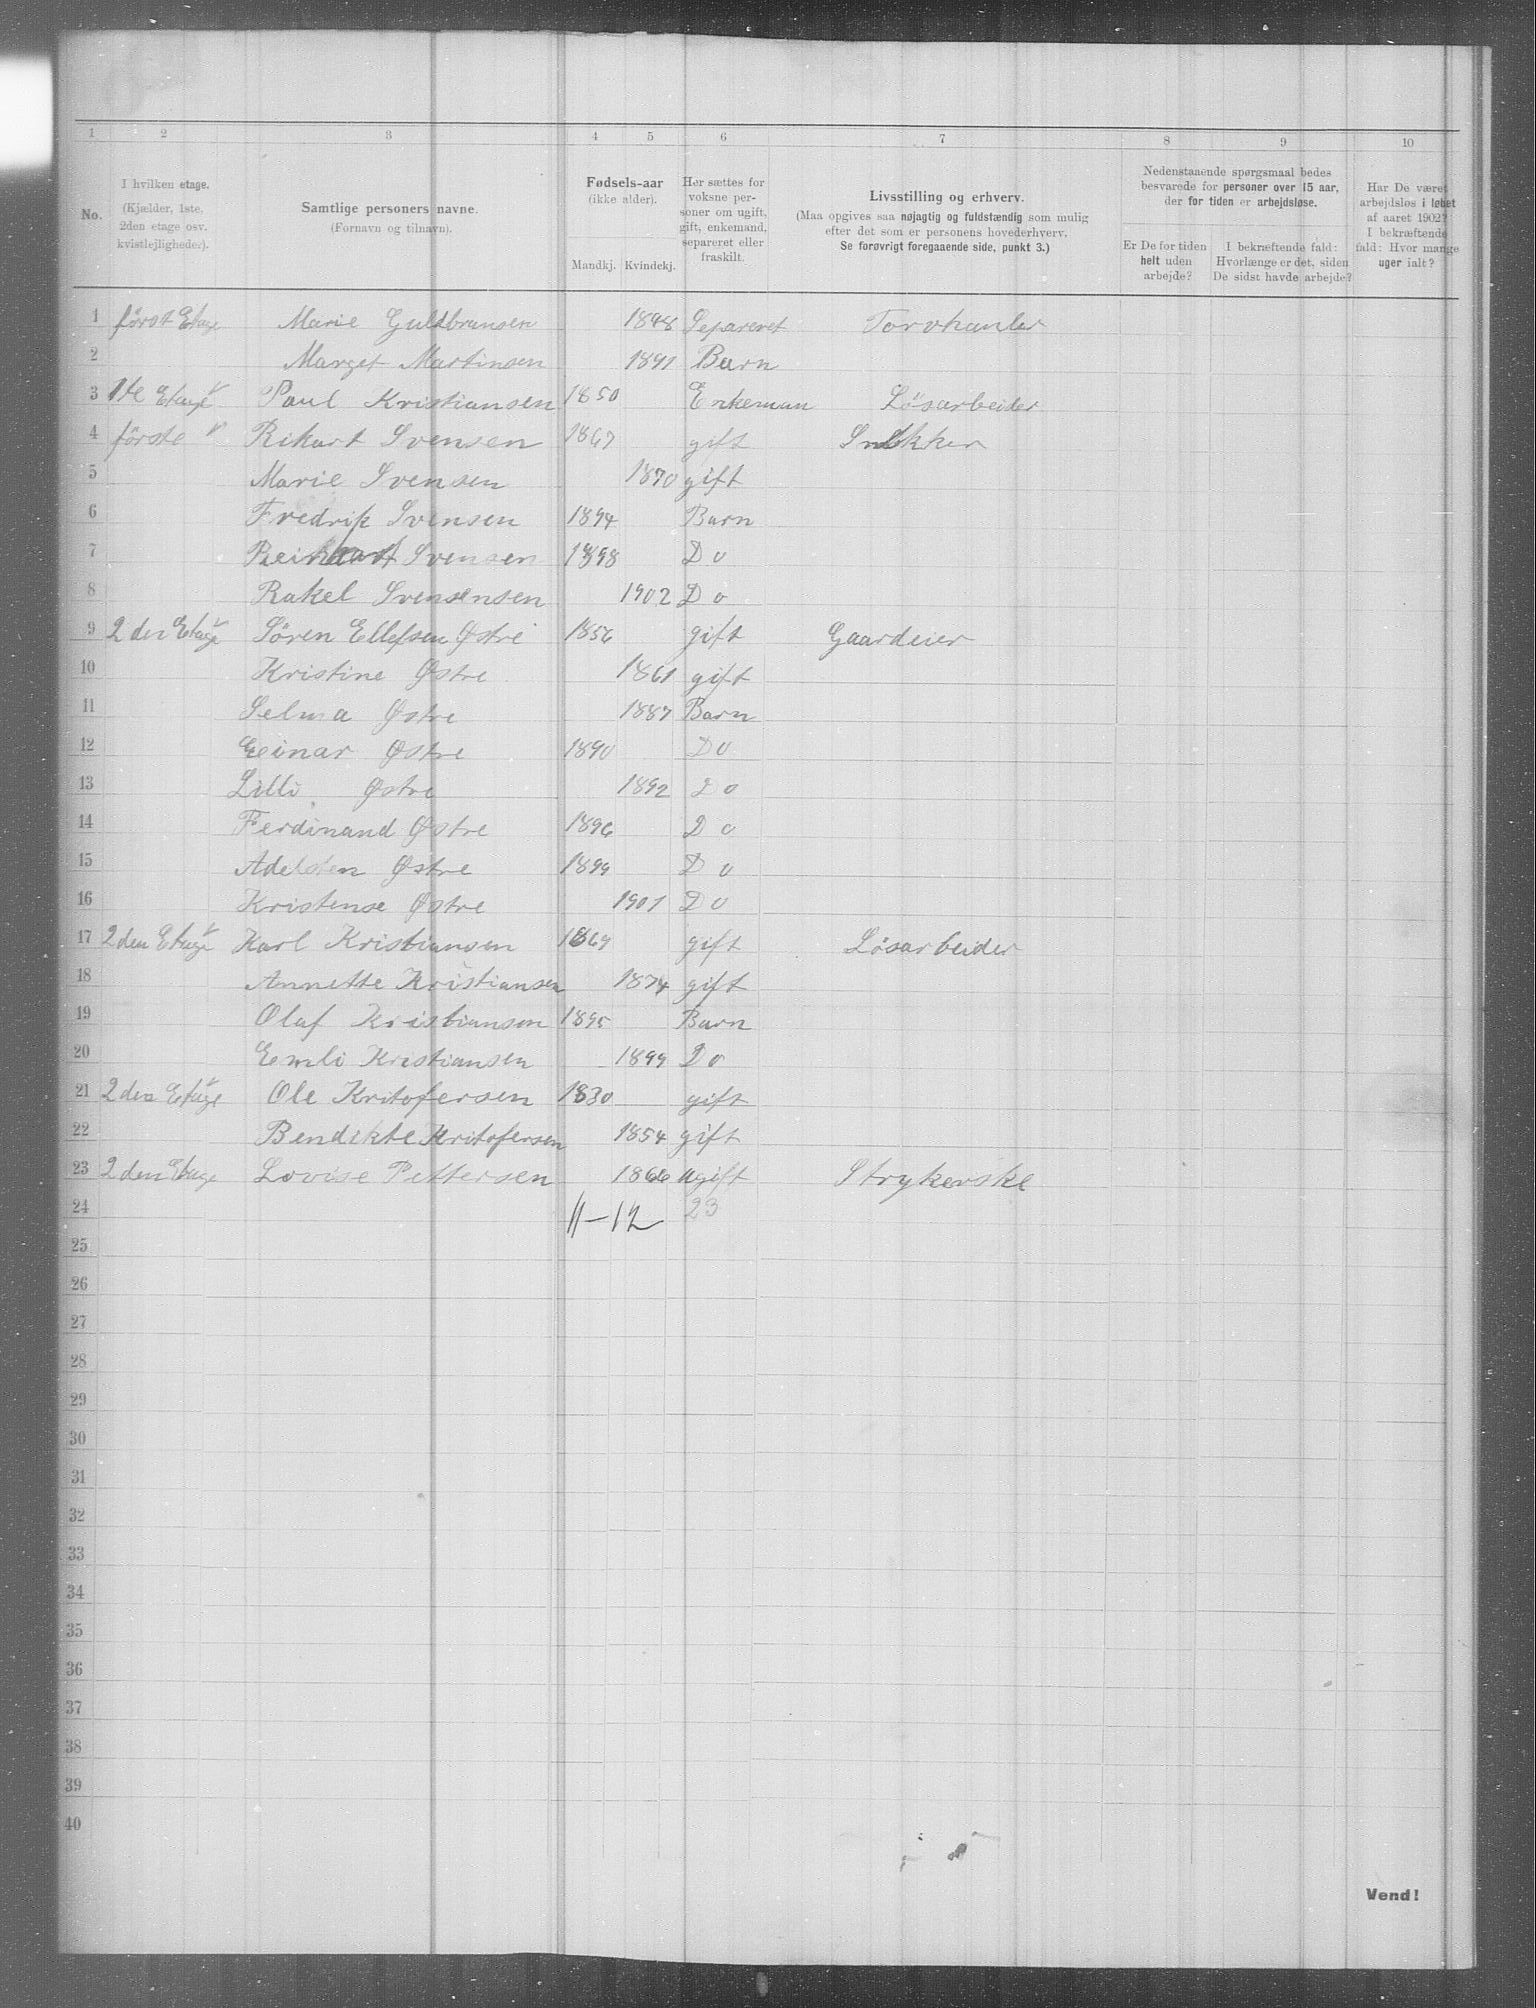 1 2 3 4 5 6 7 8 9 10
No.
I hvilken etage.
(Kjælder, 1ste,
2den etage osv.
kvistlejligheder).
Samtlige personers navne.
(Fornavn og tilnavn).
Fødsels-aar
(ikke alder).
Mandkj. Kvindekj.
Her sættes for
voksne per-
soner om ugift,
gift, enkemand,
separeret eller
fraskilt.
Livsstilling og erhverv.
(Maa opgives saa nøjagtig og fuldstændig som mulig
efter det som er personens hovederhverv.
Se forøvrigt foregaaende side, punkt 3.)
Nedenstaaende spørgsmaal bedes
besvarede for personer over 15 aar,
der for tiden er arbejdsløse.
Er De for tiden
helt uden
arbejde?
I bekræftende fald:
Hvorlænge er det, siden
De sidst havde arbejde?
Har De været
arbejdsløs i løbet
af aaret 1902?
I bekræftende
fald: Hvor mange
uger ialt?
1 först Etage Marie Guldbransen 1848 Separeret Torvhanler
2 Marget Martinsen 1891 Barn
3 1te Etage Paul Kristiansen 1850 Enkeman Lösarbeider
4 förste " Rikart Svensen 1867 gift Snekker
5 Marie Svensen 1870 gift
6 Fredrik Svensen 1894 Barn
7 Reinhart Svensen 1898 Do
8 Rakel Svensensen 1902 Do
9 2 den Etage Sören Ellefsen Østre 1856 gift Gaardeier
10 Kristine Østre 1861 gift
11 Selma Østre 1887 Barn
12 Eeinar Østre 1890 Do
13 Lilli Østre 1892 Do
14 Ferdinand Østre 1896 Do
15 Adelsten Østre 1899 Do
16 Kristense Østre 1901 Do
17 2 den Etage Karl Kristiansen 1869 gift Lösarbeider
18 Annette Kristiansen 1874 gift
19 Olaf Kristiansen 1895 Barn
20 Eemli Kristiansen 1899 Do
21 2 den Etage Ole Kritofersen 1830 gift
22 Bendikte Kritofersen 1854 gift
23 2 den Etage Lovise Pettersen 1866 ugift Strykerske
24 11-12 23
25
26
27
28
29
30
31
32
33
34
35
36
37
38
39
40
Vend!